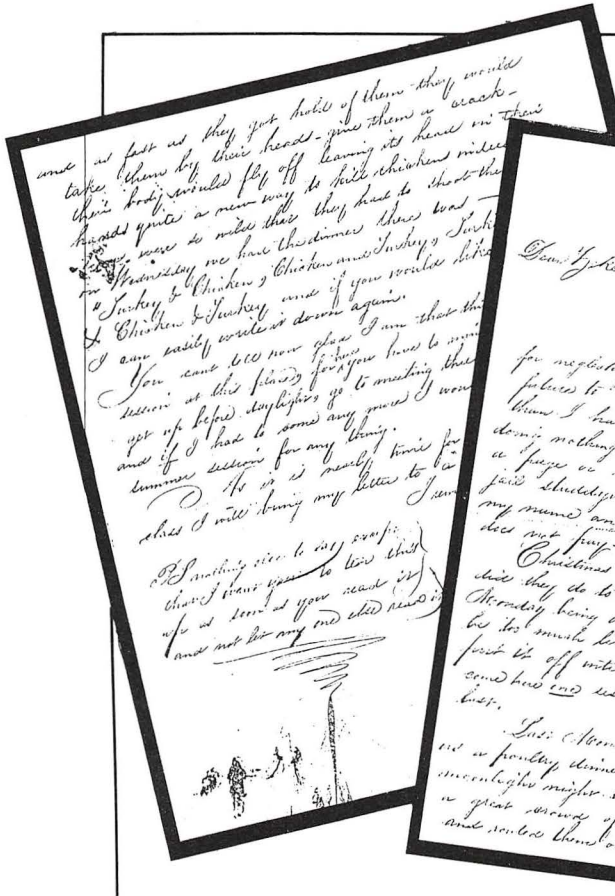 and as fast as they got hold of them they would
take them by their heads - give them a crack -
their body would fly off leaving its head in their
hands quite a new way to kill chickens indeed
were so wild that they had to shoot the
on Wednesday we had the dinner there was -
Turkey & Chicken, Chicken and Turkey, Turkey
& Chicken & Turkey and if you would like
I can easily write it down again.
You cant see now glad I am that this
session at this place, for here you have to
get up before daylight, go to meeting three
and if I had to some any more I would
summer session for any thing.
As it is nearly time for
class I will bring my letter to a
I rem
PS nothing more to say except
that I want you to tear this
up as soon as you read it
and not let any one else read it
Dear
for neglect
future to
than I ha
doing nothing
a page or
jail studdying
my name an
does not pay -
Christmas
did they do to
Monday being
be too much
put it off unti
come here one ses
last.
Last Mon
us a poultry dinne
moonlight night.
a great crowd of
and routed them o